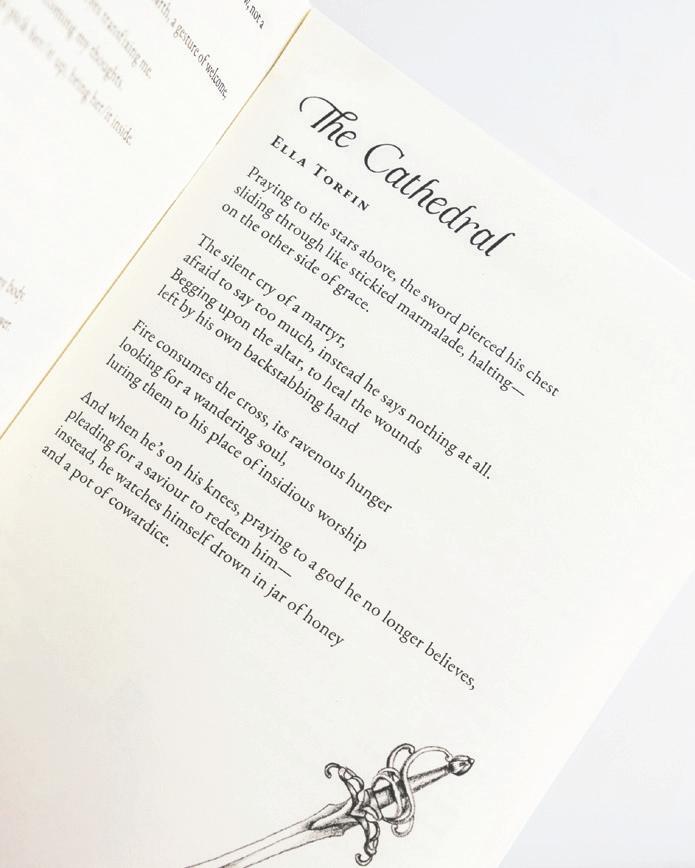 w, not a
arth, a gesture of welcome,
transfixing me.
my thoughts.
bring her/it inside.
my body.
The Cathedral
ELLA TORFIN
Praying to the stars above, the sword pierced his chest
sliding through like stickied marmalade, halting—
on the other side of grace.
The silent cry of a martyr,
afraid to say too much, instead he says nothing at all.
Begging upon the altar, to heal the wounds
left by his own backstabbing hand
Fire consumes the cross, its ravenous hunger
looking for a wandering soul,
luring them to his place of insidious worship
And when he's on his knees, praying to a god he no longer believes,
pleading for a saviour to redeem him—
instead, he watches himself drown in jar of honey
and a pot of cowardice.